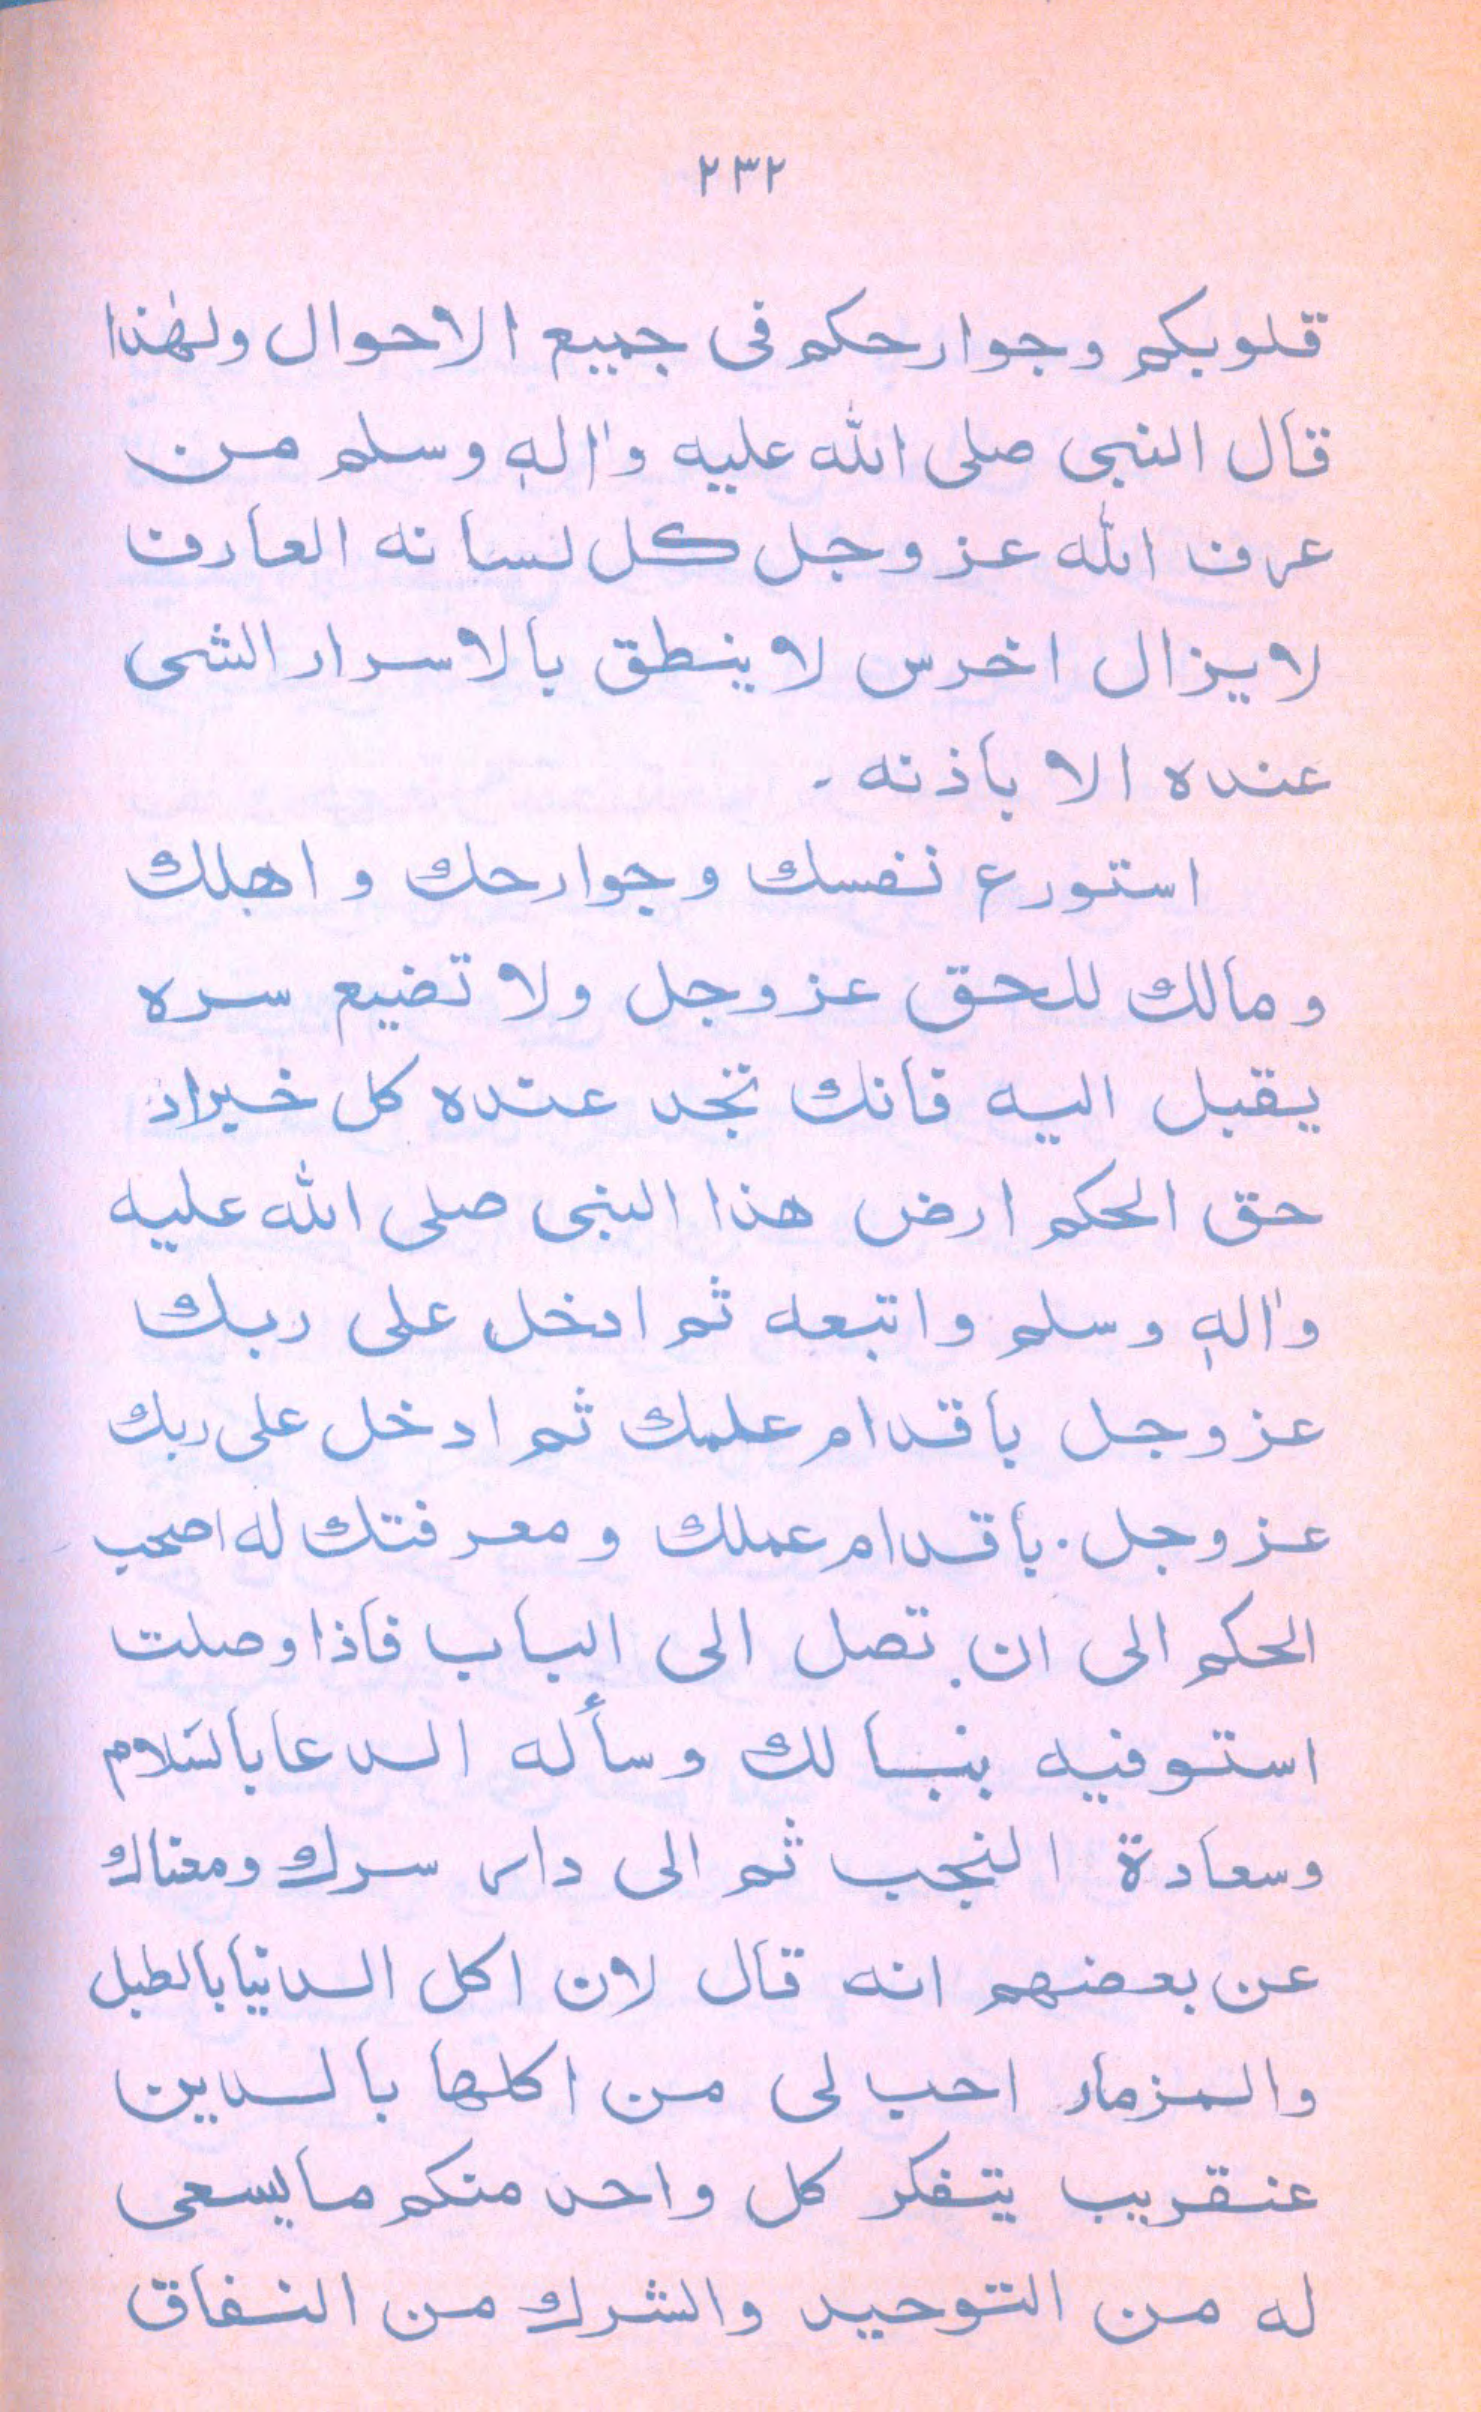 ٢٣٢
قلوبكم وجوارحكم فى جميع الاحوال ولهٰذا
قال النبى صلى الله عليه واٰله وسلم من
عرف الله عز وجل كل لسانه العارف
لايزال اخرس لاينطق بالاسرار الشى
عنده الا باذنه -
استورع نفسك وجوارحك واهلك
ومالك للحق عز وجل ولا تضيع سره
يقبل اليه فانك تجد عنده كل خيراد
حق الحكم ارض هذا النبى صلى الله عليه
واٰله وسلم واتبعه ثم ادخل على ربك
عز وجل باقدام علمك ثم ادخل على ربك
عز وجل . باقدام عملك ومعرفتك له اصحب
الحكم الى ان تصل الى الباب فاذا وصلت
استوفيه بنبالك وسأله الدعا بالسّلام
وسعادة النجب ثم الى دار سرك ومعناك
عن بعضهم انه قال لان اكل الدنيا بالطبل
والمزمار احب لى من اكلها بالدين
عنقريب يتفكر كل واحد منكم ما يسعى
له من التوحيد والشرك من النفاق